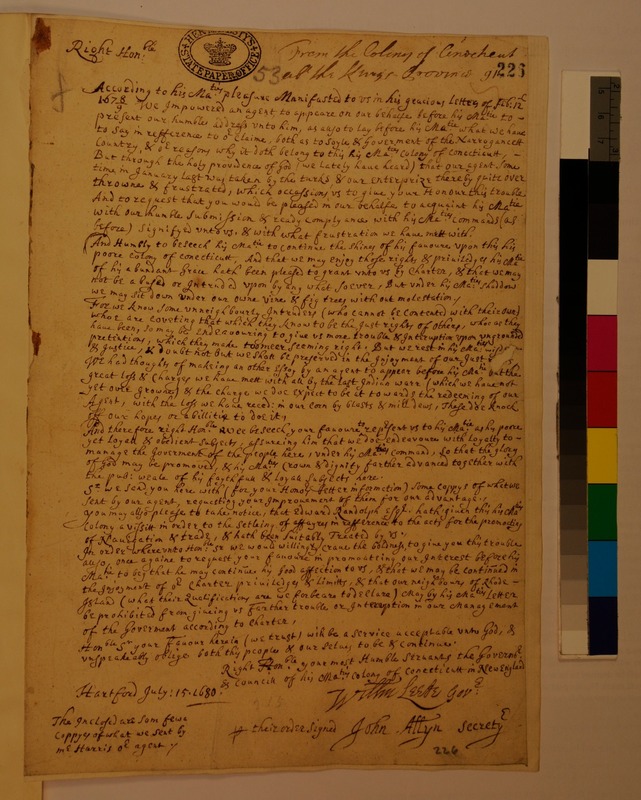 Right Honble
HER MAJESTY'S STATE PAPER OFFICE
From the Colony of Conechecut
53 ab the Kings Province
226
According to his Matie pleasure Manifested to vs in his gracious Letter of Feb: 12
1678/9 We Impowered an agent to appeare on our behalfe before his Matie to
present our humble address vnto him, as also to lay before his Matie what we have
to say in refference to or claime, both as to Soyle & Goverment of the Narrogancett
Country, & or reasons why it doth belong to this his Maties Colony of conecticutt,
But through the holy providence of God (we lately have heard) that our agent some
time in January last was taken by the turks & our Enterprize thereby quite over
throwne & frustrated, which occassions vs to give your Honour this trouble
And to request that you would be pleased in our behalfe to acquint his Matie
with our humble Submission & ready Complyance with his Maties Commands (as
before) Signifyed vnto vs: & with what frustration we have mett with.
And Humbly to beseech his Matie to continue the shines of his favoure vpon this his
poore colony of conecticutt, And that we may enjoy those rights & priviledges his Matie
of his abundant Grace hath been pleased to grant vnto vs by Charter, & that we may
not be abused or Intruded vpon by any what soever, But vnder his Maties shaddow
we may sit down vnder our owne vine & fig trees without molestation;
For we know some vnneighbourly Intruders (who cannot be Contented with their owne)
whoe are coveting that which they know to be the Just rights of others, whoe as they
have been, so may be Endeavouring to give vs more trouble & Interuption vpon vngrounded
pretentions, which they make to meer seeming right. But we rest in his Maties
& Justice, & doubt not but we shall be preserved in the Enjoyment of our Just
We had thoughts of making an other Essay by an agent to appeer before his Matie but the
great loss & Charges we have mett with all by the last Indian warr (which we have not
yet over growne) & the charge we doe expect to be at towards the redeeming of our
Agent, with the loss we have recd: in our corn by blasts & mill dews, These doe knock
off our hopes or abillitie to doe it;
And therefore right Honble we beseech your favour to represent vs to his Matie as his poore
yet loyall & obedient subjects, assureing him that we doe endeavoure with loyalty to
manage the Goverment of the people here, vnder his Maties command, so that the glory
of God may be promoved, & his Maties crown & dignity farther advanced together with
the pub: weale of his faithfull & loyall Subjects here.
Sr we send you here with (for your Honors better information) some coppys of what we
sent by our agent, requesting your improvement of them for our advantage.
you may allso please to take notice, that Edward Randolph Esqr: hath given this his Maties
Colony a vissitt in order to the setling of affayres in refference to the acts for the promoting
of Navigation & trade, & hath been suitably Treated by vs.
In order where vnto Honble Sr we would willingly crave the boldness to give you this trouble
allso, once againe to request your favour in promouting our Interest before his
Matie to beg that he may continue his good affection to vs, & that we may be continued in
the Injoyment of or Charter priviledges & limitts, & that our neighbours of Rhode
Island (what their Qualifications are we forbeare to declare) May by his Maties Letter
be prohibited from giueing vs farther trouble or Interruption in our Management
of the Goverment according to Charter;
Honble Sr your favour herein (we trust) will be a service acceptable vnto God, &
vnspeakably oblige both this peoples & our Selus, to be & Continue
Right Honble your most Humble Servants the Governr
& Councill of his Maties Colony of Conecticutt in New England
Hartford July: 15: 1680.
Willm Leete Govr
The Inclosed are som fewe
coppyes of what we sent by
mr Harris or agent
their order signed John Allyn Secrety
226